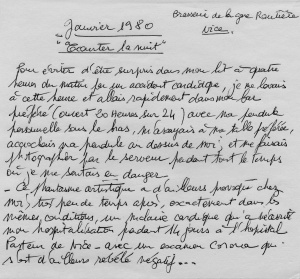 Janvier 1980
Brasserie de la gare Routière
Nice.
"Ecouter la nuit"
Pour éviter d'être surpris dans mon lit à quatre
heures du matin par un accident cardiaque, je me levais
à cette heure et allais rapidement dans mon bar
préféré (ouvert 20 heures sur 24) avec ma pendule
personnelle sous le bras, m'asseyais à ma table préférée,
accrochais ma pendule au dessus de moi, et me faisais
photographier par le serveur pendant tout le temps
où je me sentais en danger.
- Ce phantasme artistique a d'ailleurs provoqué chez
moi, très peu de temps après, exactement dans les
mêmes conditions, un malaise cardiaque qui a nécessité
mon hospitalisation pendant 14 jours à l'hôpital
Pasteur de Nice - avec un examen Corona qui
s'est d'ailleurs révélé négatif...